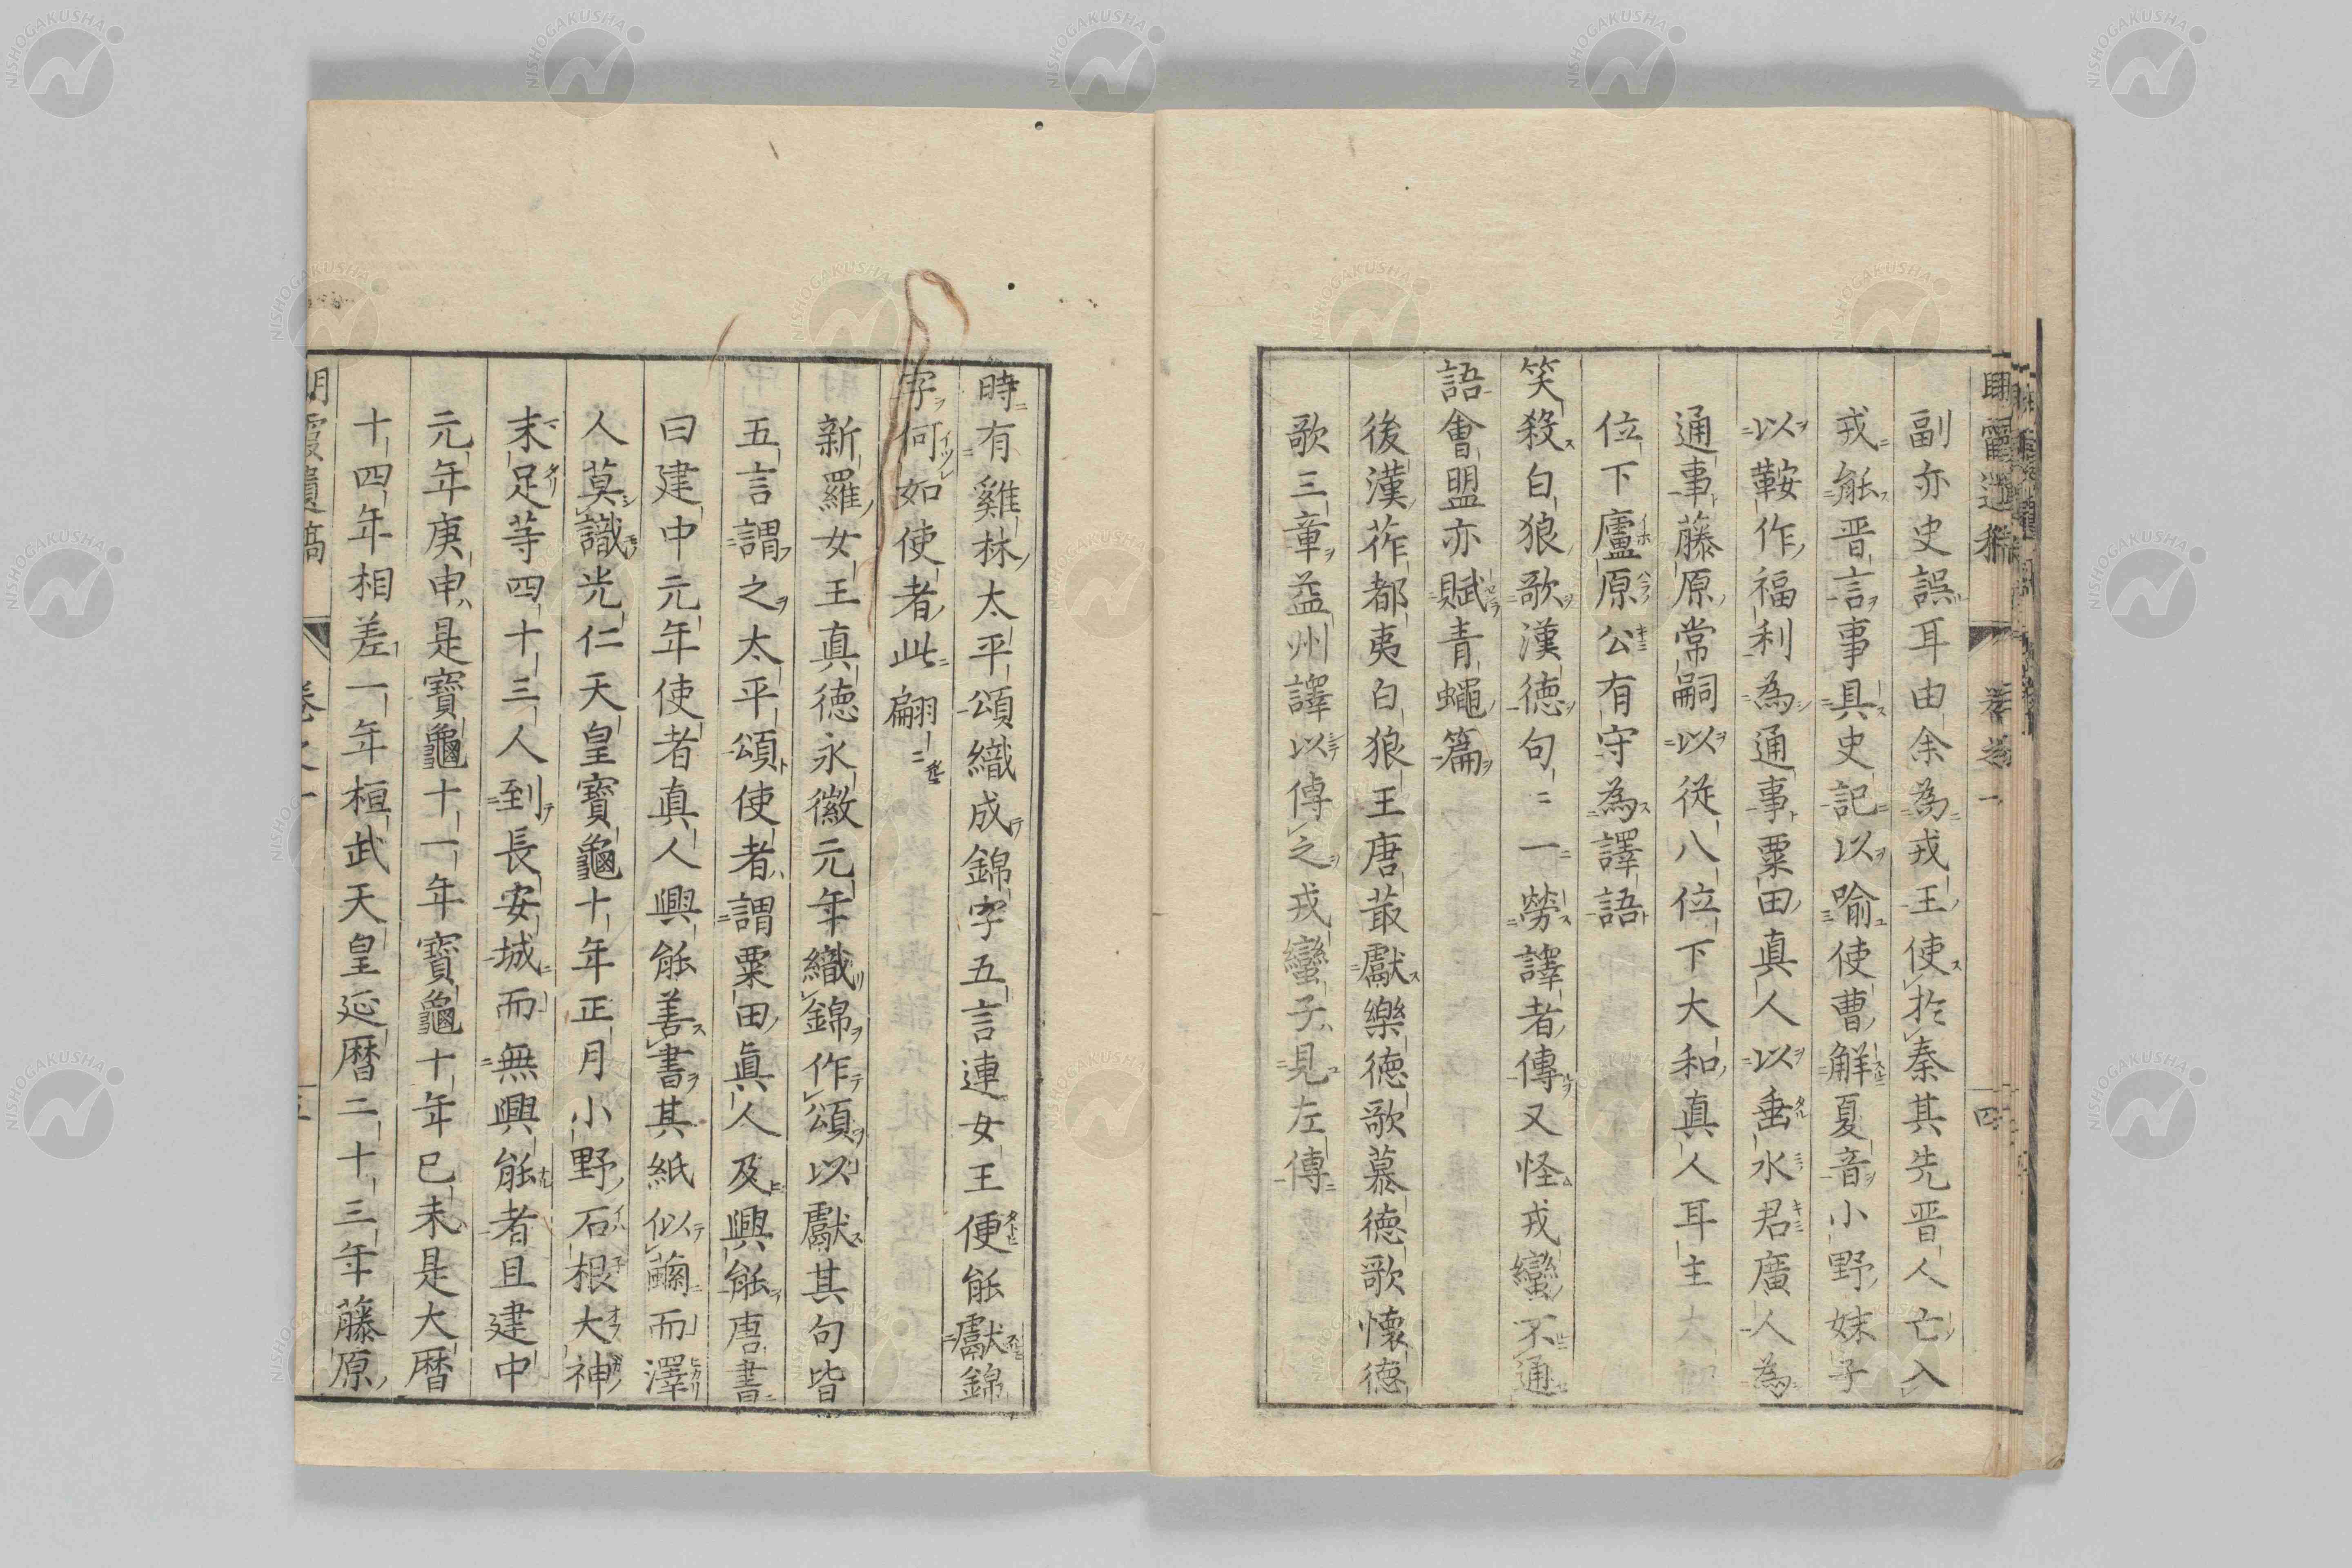 明霞遺稿 卷之一 四
副亦史誤耳由余為戎王使於秦其先晉人亡入
戎能晋言事具史記以喻使曹解夏音小野妹子
以鞍作福利為通事粟田真人以垂水君廣人為
通事藤原常嗣以従八位下大和真人耳主
位下廬原公有守為譯語
笑殺白狼歌漢徳句二一勞譯者傳又怪戎蠻不通
語會盟亦賦青蠅篇
後漢莋都夷白狼王唐菆獻樂徳歌慕徳歌懐徳
歌三章益州譯以傳之戎蠻子見左傳
時有雞林太平頌織成錦字五言連女王便能獻錦
字何如使者此翩二
新羅女王真徳永徽元年織錦作頌以獻其句皆
五言謂之太平頌使者謂粟田眞人及興能唐書
曰建中元年使者真人興能善書其紙似繭而澤
人莫識光仁天皇寶龜十年正月小野石根大神
末足等四十三人到長安城而無興能者且建中
元年庚申是寶龜十一年寶龜十年已未是大暦
十四年相差一年桓武天皇延暦二十三年藤原
明霞遺稿 卷之一 五
NISHOGAKUSHA